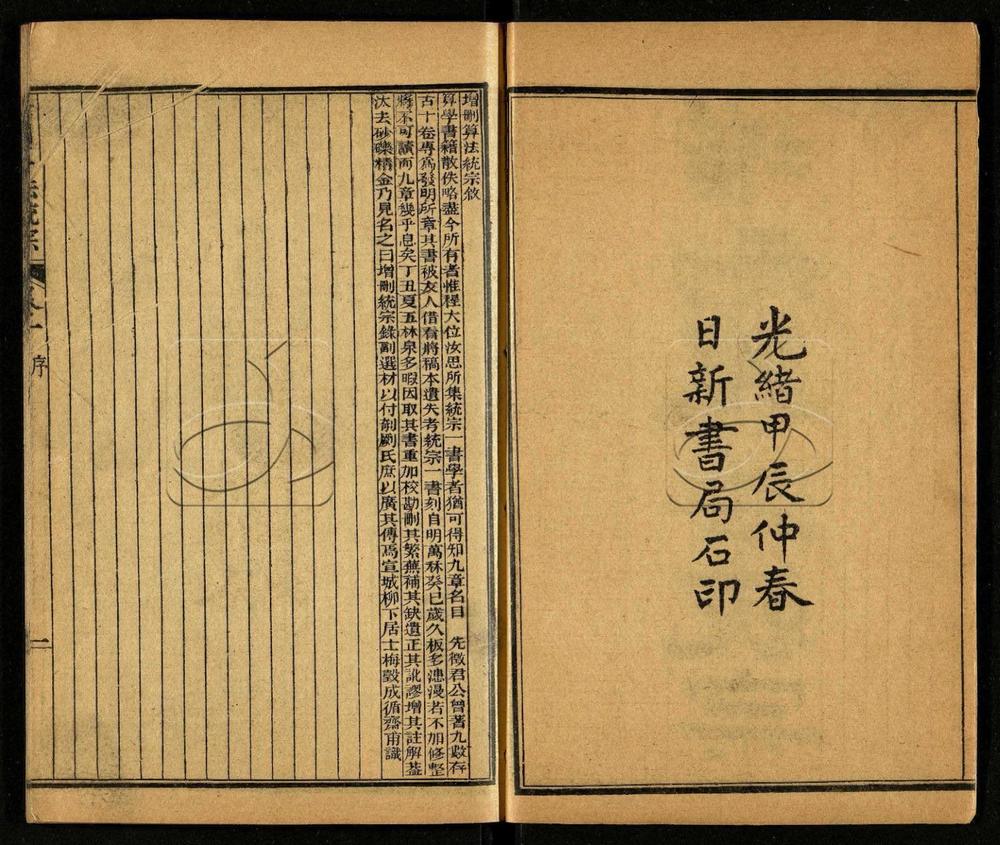 光緒甲辰仲春
日新書局石印
增刪算法統宗敘
算學書籍散佚略盡今所有者惟程大位汝思所集統宗一書學者猶可得知九章名目 先徵君公曾著九數存
古十卷專爲發明所章其書被友人借看將稿本遺失考統宗一書刻自明萬秝癸巳歲久板多漶漫若不加修整
將不可讀而九章幾乎息矣丁丑夏五林泉多暇因取其書重加校勘刪其繁蕪補其缺遺正其訛謬增其註解蓋
汰去砂礫精金乃見名之曰增刪統宗錄副選材以付剞劂氏庶以廣其傳焉宣城柳下居士梅瑴成循齋甫識
法統宗
序
一